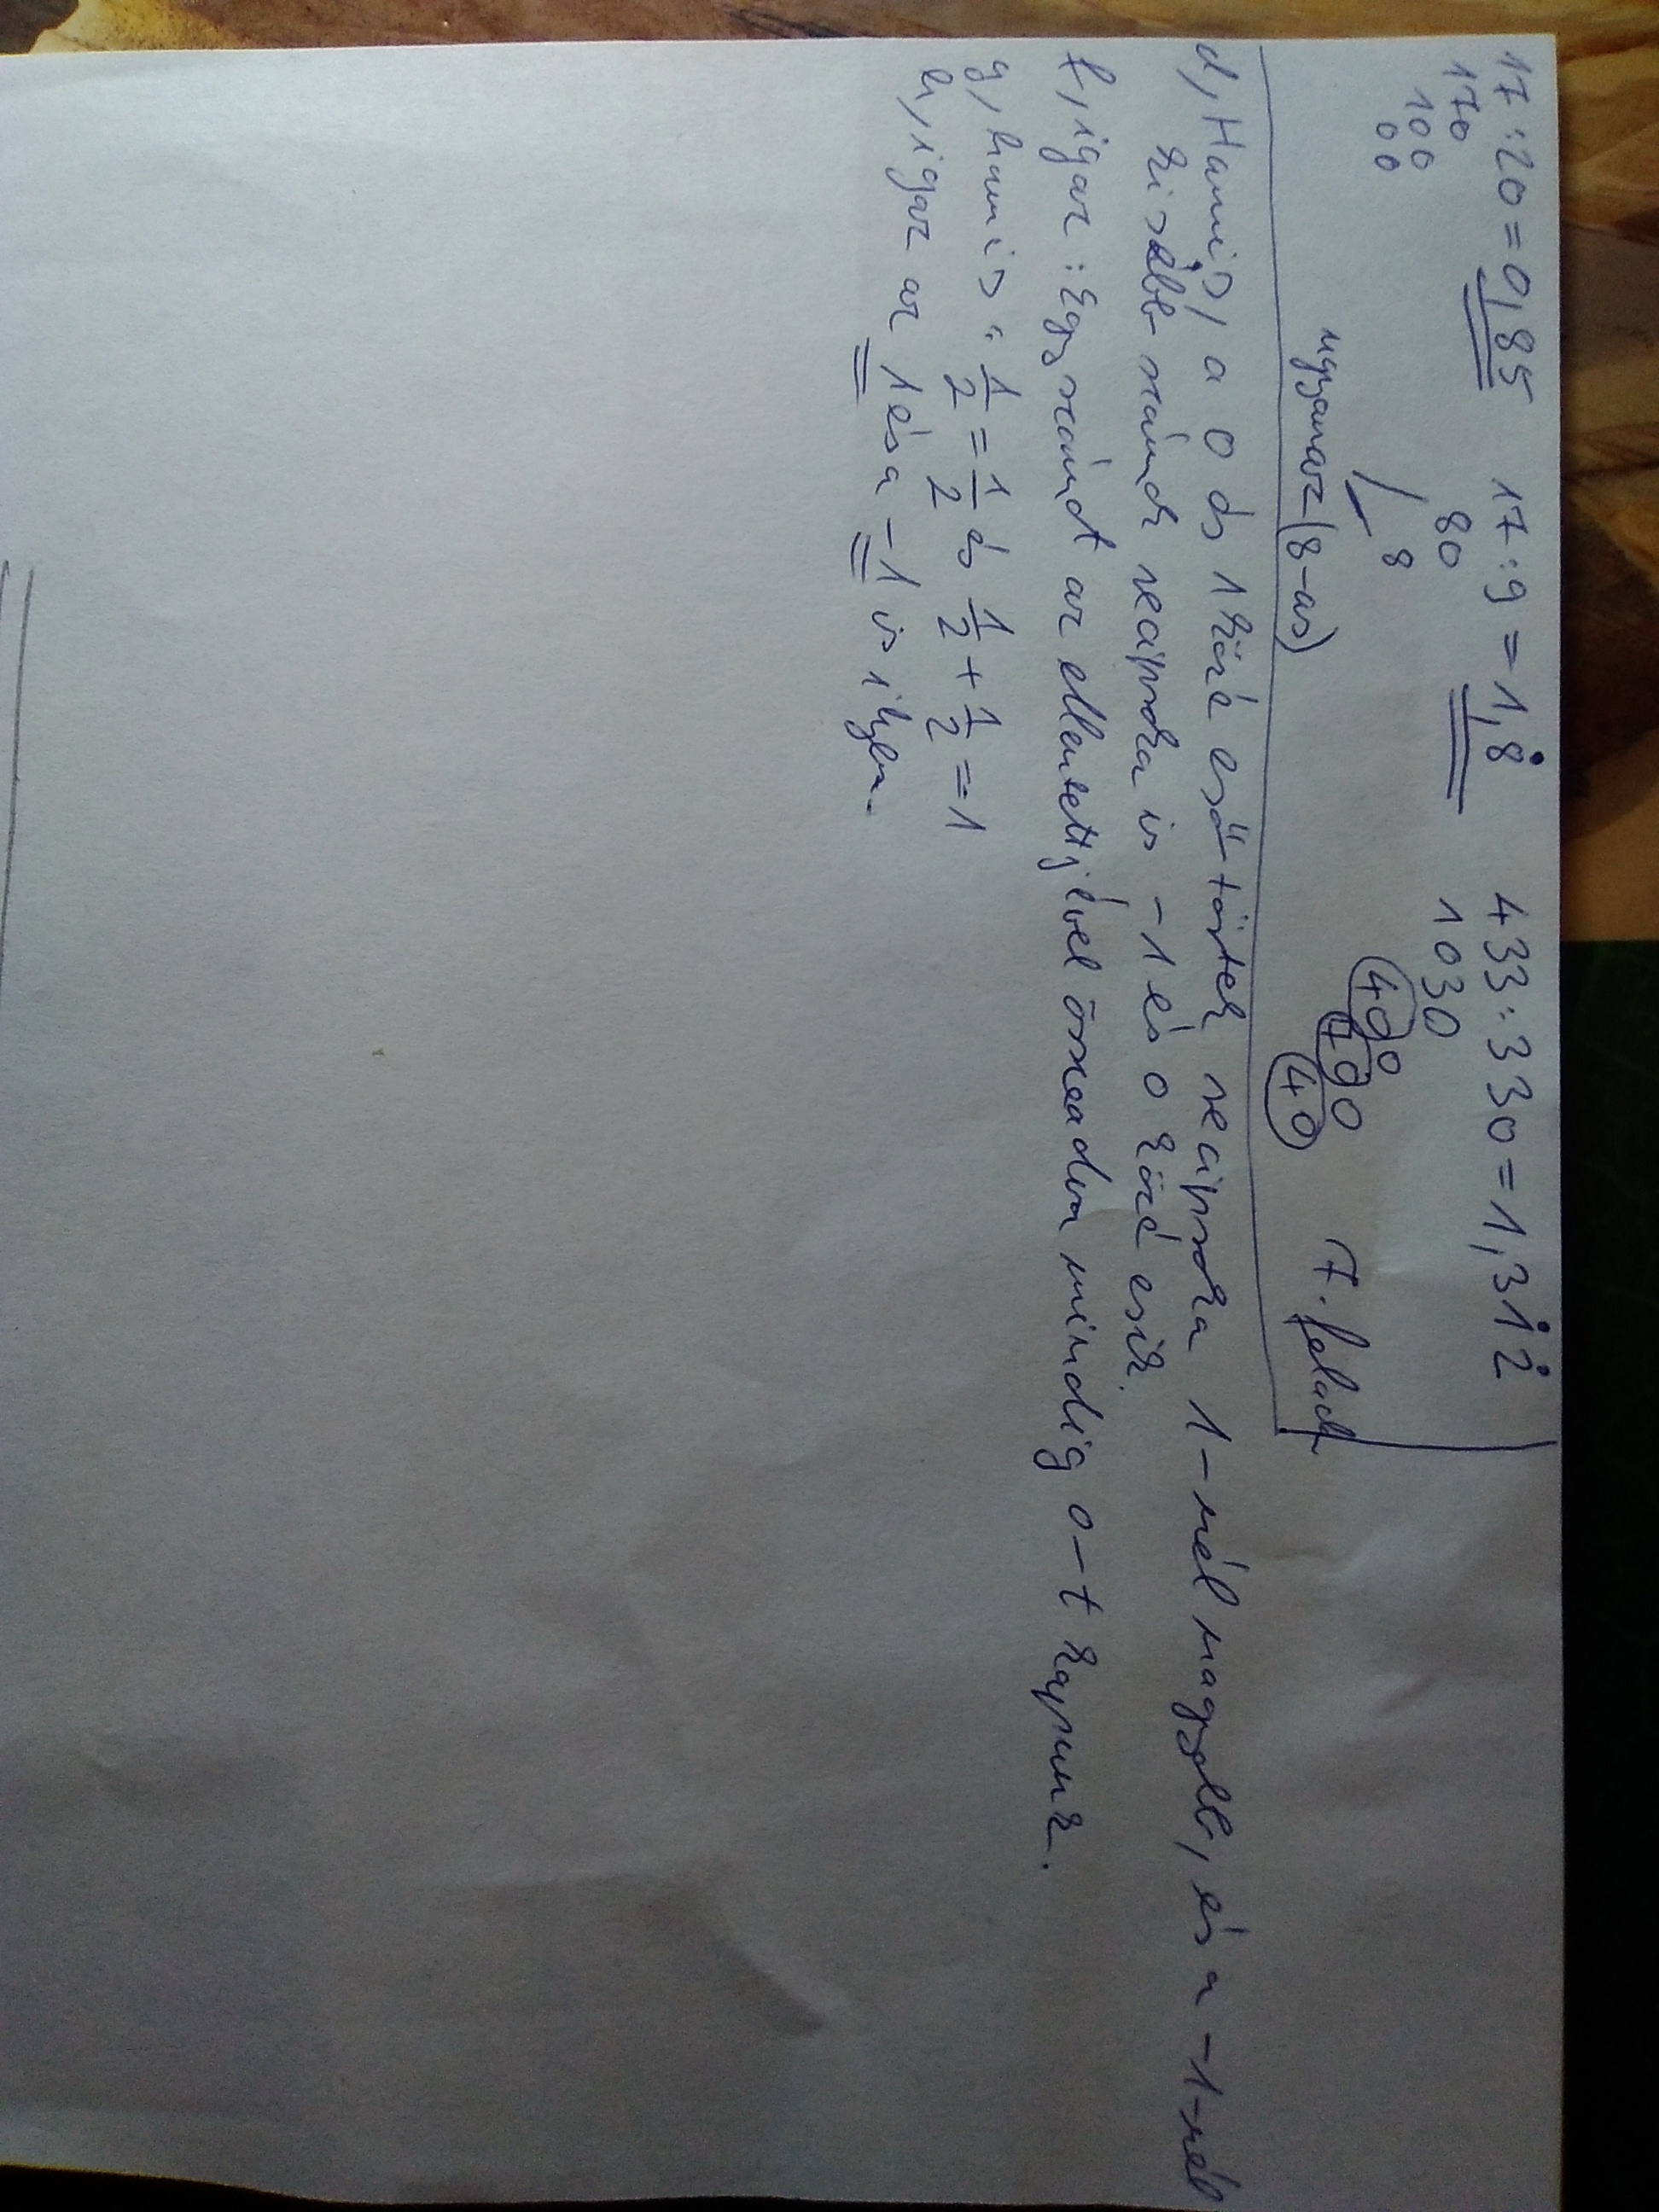 17:20=0,85 17:9=1,8̇ 433:330=1,31̇2̇
170 80 1030
100 8 400
00 790
ugyanaz (8-as) 40 7. felad
d, Hamis, a 0 és 1 közé eső törtek reciproka 1-nél nagyobb, és a -1-nél
kisebb számok reciproka is -1 és 0 közé esik.
f, igaz: Egy számot az ellentettjével összeadva mindig 0-t kapunk.
g, hamis: 1/2 = 1/2 és 1/2 + 1/2 = 1
h, igaz az 1 és a -1 is ilyen.